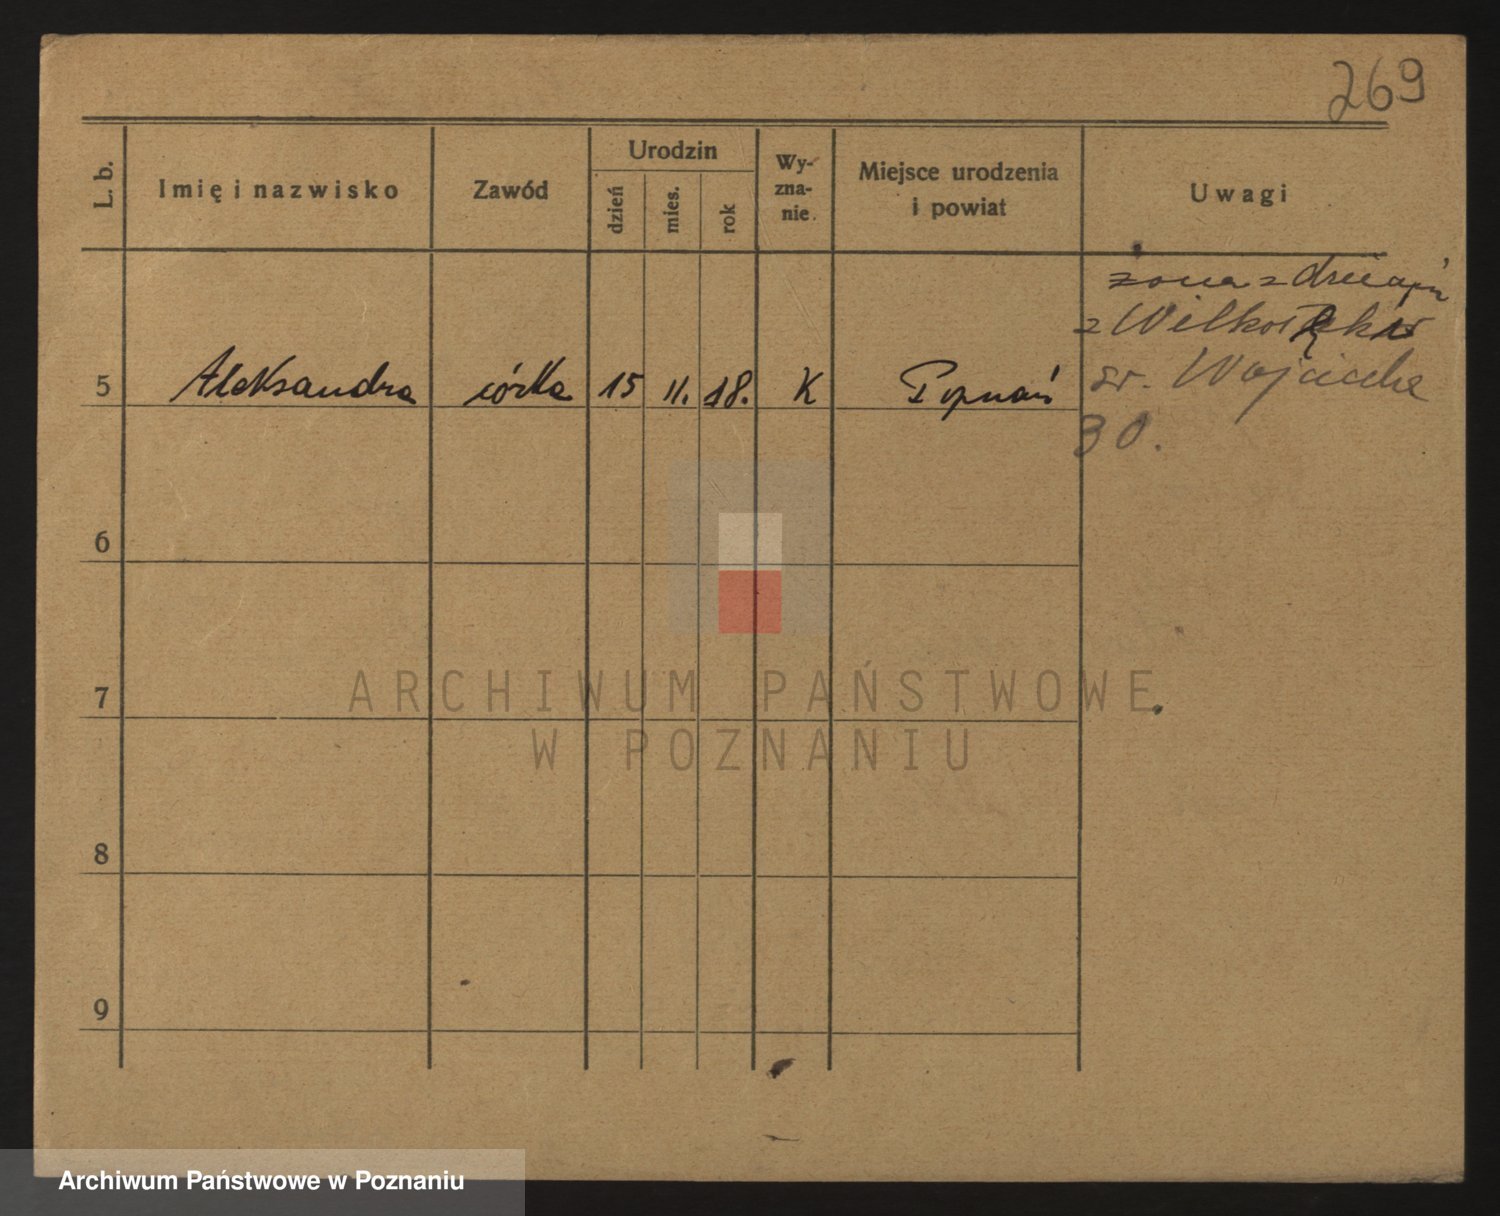 269
L. b.
Imię i nazwisko
Zawód
Urodzin
dzień
mies.
rok
Wy-
zna-
nie.
Miejsce urodzenia
i powiat
Uwagi
żona z dziećmi
z
św. Wojciecha
30.
5 Aleksandra córka 15 11. 18. K Poznań
6
7
8
9
ARCHIWUM PAŃSTWOWE
W POZNANIU
Archiwum Państwowe w Poznaniu